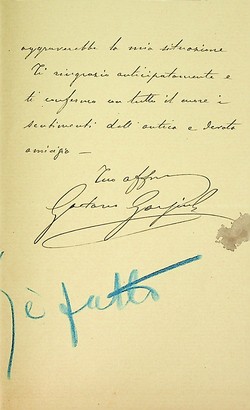 aggraverebbe la mia situazione
Ti ringrazio anticipatamente e
ti confermo con tutto il cuore i
sentimenti dell'antica e devota
amicizia –
Tuo affmo
Gaetano
è fatto